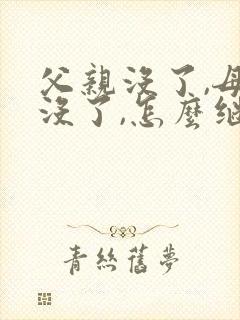 父親沒了,母
沒了,怎麼繼
青絲舊夢